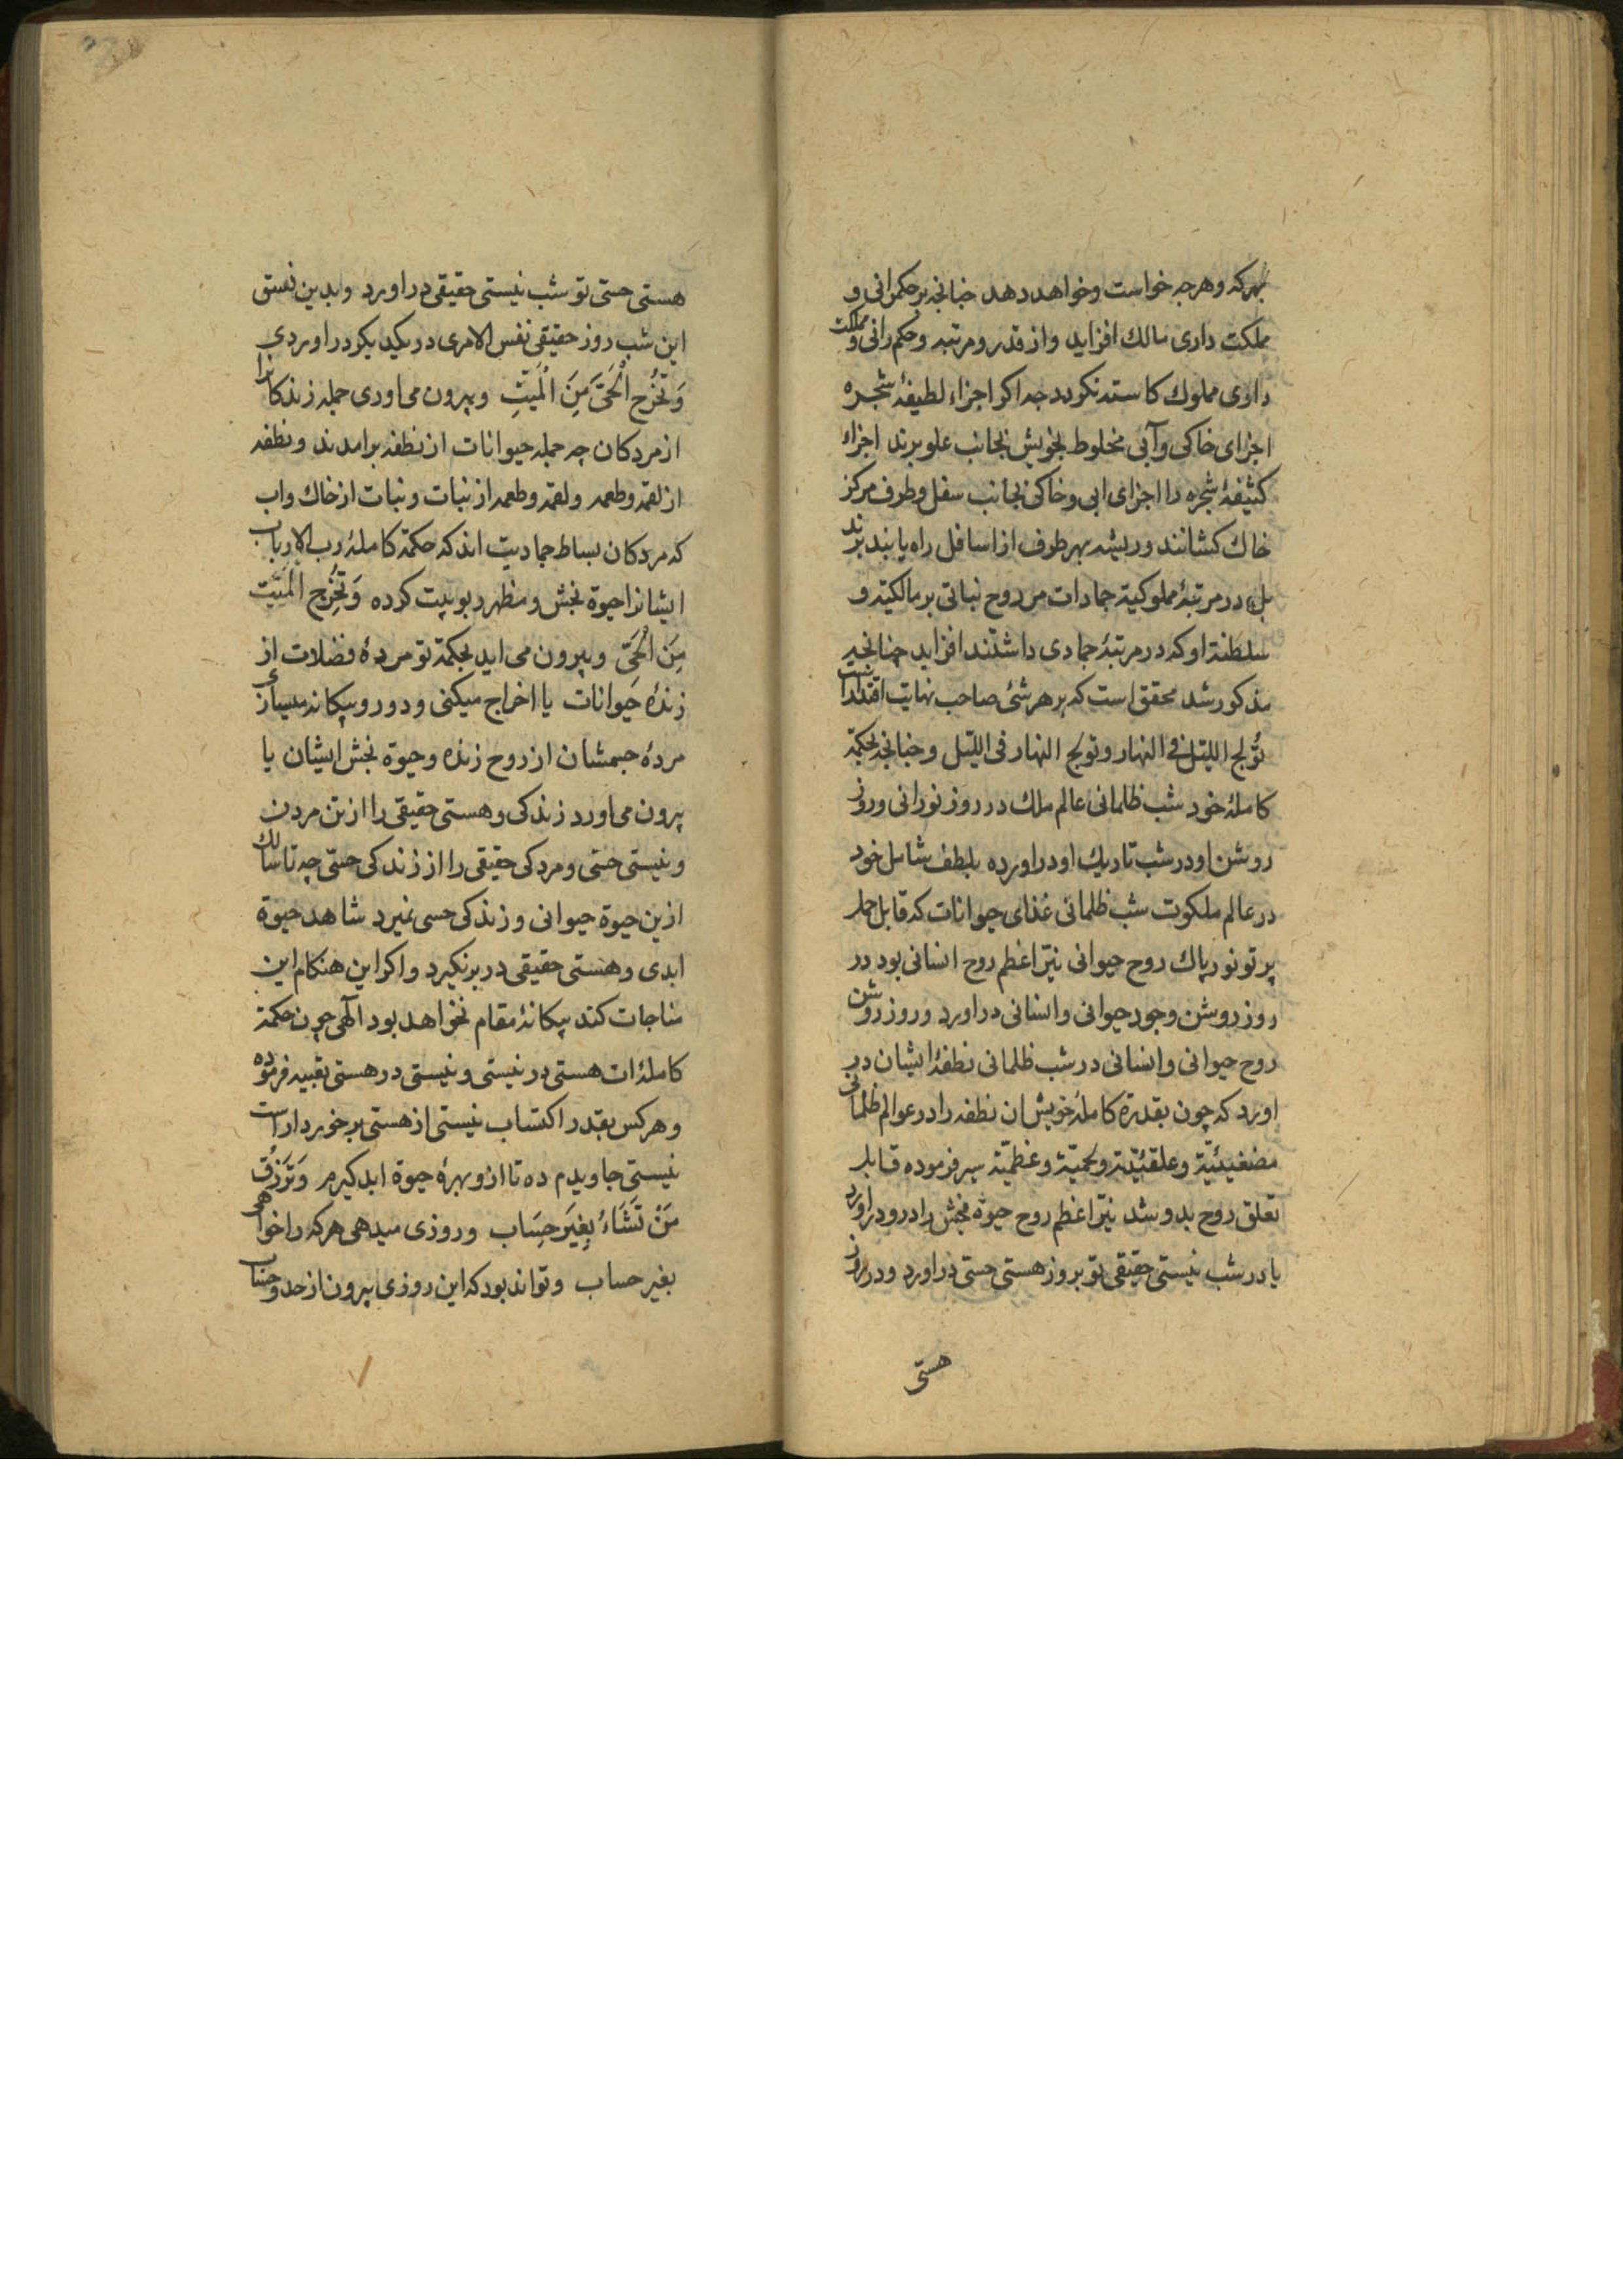 بهرکه وهرچه خواست وخواهد دهد چنانچه بر حکمرانی و
مملکت داری مالك افزاید واز قدر ومرتبه وحکم رانی ومملکت
داری مملوك کاسته نکردد چه اکر اجزاء لطیفهٔ شجره
اجزای خاکی وآبی مخلوط بخویش بجانب علو برند اجزاء
کثیفهٔ شجره را اجزای ابی وخاکی بجانب سفل وطرف مرکز
خاك کشانند وریشه بهر طرف از اسافل راه یابند برند
بل در مرتبهٔ مملوکیة جمادات مر روح نباتی بر مالکیة و
سلطنة او که در مرتبهٔ جمادی داشتند افزاید چنانچه
مذکور شد محقق است که بر هر شئی صاحب نهایت اقتدار است
تُولج اللیّل فے النهار وتولج النهار فی اللیّل وچنانچه بحکمة
کاملهٔ خود شب ظلمانی عالم ملك در روز نورانی وروز
روشن او در شب تاریك او دراورده بلطف شامل خود
در عالم ملکوت شب ظلمانی غذای حیوانات که قابل حمل
پرتو نور پاك روح حیوانی نیّر اعظم روح انسانی بود در
روز روشن وجود حیوانی وانسانی دراورد وروز روشن
روح حیوانی وانسانی در شب ظلمانی نطفهٔ ایشان در
اورد که چون بقدرة کاملهٔ خویش ان نطفه را در عوالم ظلمانی
مضغیئیّة وعلقئیّة ولحمیّة وعظمیّة سیر فرموده قابل
تعلق روح بدو شد نیّر اعظم روح حیوة بخش را در و دراورد
یا در شب نیستی حقیقی تو بروز هستی حسّی دراورد ودر روز
هستی
هستی حسّی تو شب نیستی حقیقی دراورد وبدین نسق
این شب روز حقیقی نفس الامری در یکدیکر دراوردی
وَتُخْرِج الْحَیَّ مِنَ الْمَیّتِ وبیرون می اوری جمله زندکانرا
از مردکان چه جمله حیوانات از نطفه برامدند ونطفه
از لقمه وطعمه ولقمه وطعمه از نبات ونبات از خاك واب
که مردکان بساط جمادیت اند که حکمة کاملهٔ رب الارباب
ایشانرا حیوة بخش ومظهر ربوبیت کرده وَتُخْرِج الْمَیّت
مِنَ الْحَیّ وبیرون می اید بحکمة تو مردهٔ فضلات از
زندهٔ حیوانات یا اخراج میکنی ودور وبیکانه میسازی
مردهٔ جسمشان از روح زنده وحیوة بخش ایشان یا
بیرون می اورد زندکی وهستی حقیقی را از تن مردن
ونیستی حسّی ومردکی حقیقی را از زندکی حسّی چه تا سالك
ازین حیوة حیوانی وزندکی حسی نمیرد شاهد حیوة
ابدی وهستی حقیقی در بر نکیرد واکر این هنکام این
مناجات کند بیکانهٔ مقام نخواهد بود الٓهی چون حکمة
کامله‌ات هستی در نیستی ونیستی در هستی تعبیه فرموده
وهرکس بقدر اکتساب نیستی از هستی برخوردارست
نیستی جاویدم ده تا ازو بهرهٔ حیوة ابد کیرم وَتَرْزُقُ
مَنْ تَشَاءُ بِغِیَر حِسَاب وروزی میدهی هرکه را خواهی
بغیر حساب وتواند بود که این روزی بیرون از حد وحساب